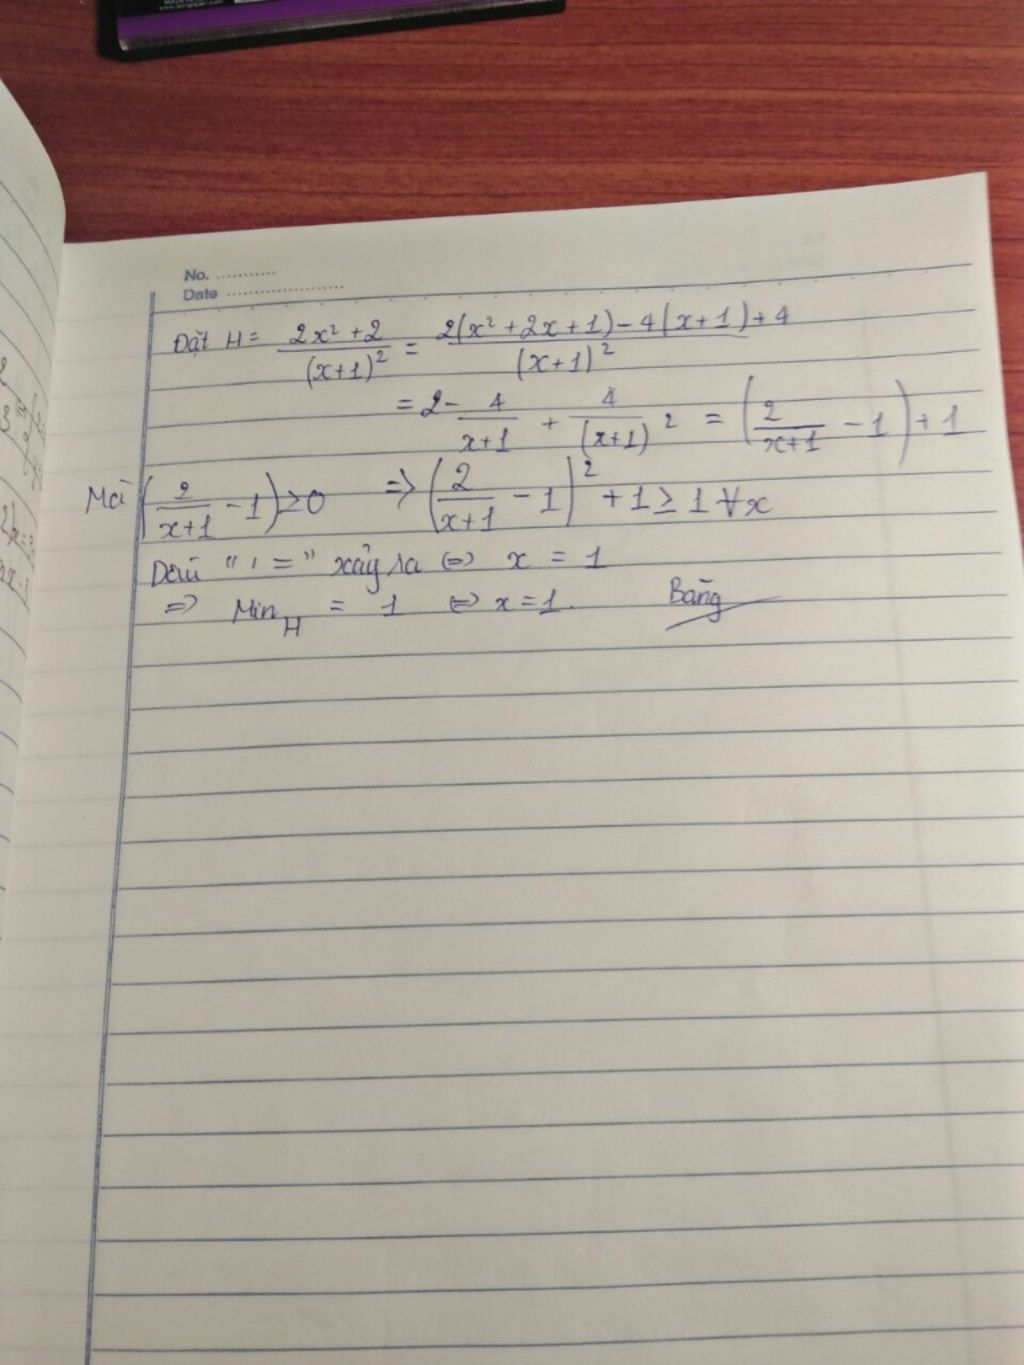 No. ...........
Date .....................
Đặt H = \frac{2x² + 2}{(x+1)²} = \frac{2(x² + 2x + 1) - 4(x+1) + 4}{(x+1)²}
= 2 - \frac{4}{x+1} + \frac{4}{(x+1)}² = (\frac{2}{x+1} - 1) + 1
Mà (\frac{2}{x+1} - 1) ≥ 0 ⇒ (\frac{2}{x+1} - 1)² + 1 ≥ 1 ∀x
Dấu " = " xảy ra ⇔ x = 1
⇒ Min_H = 1 ⇔ x = 1. Bằng